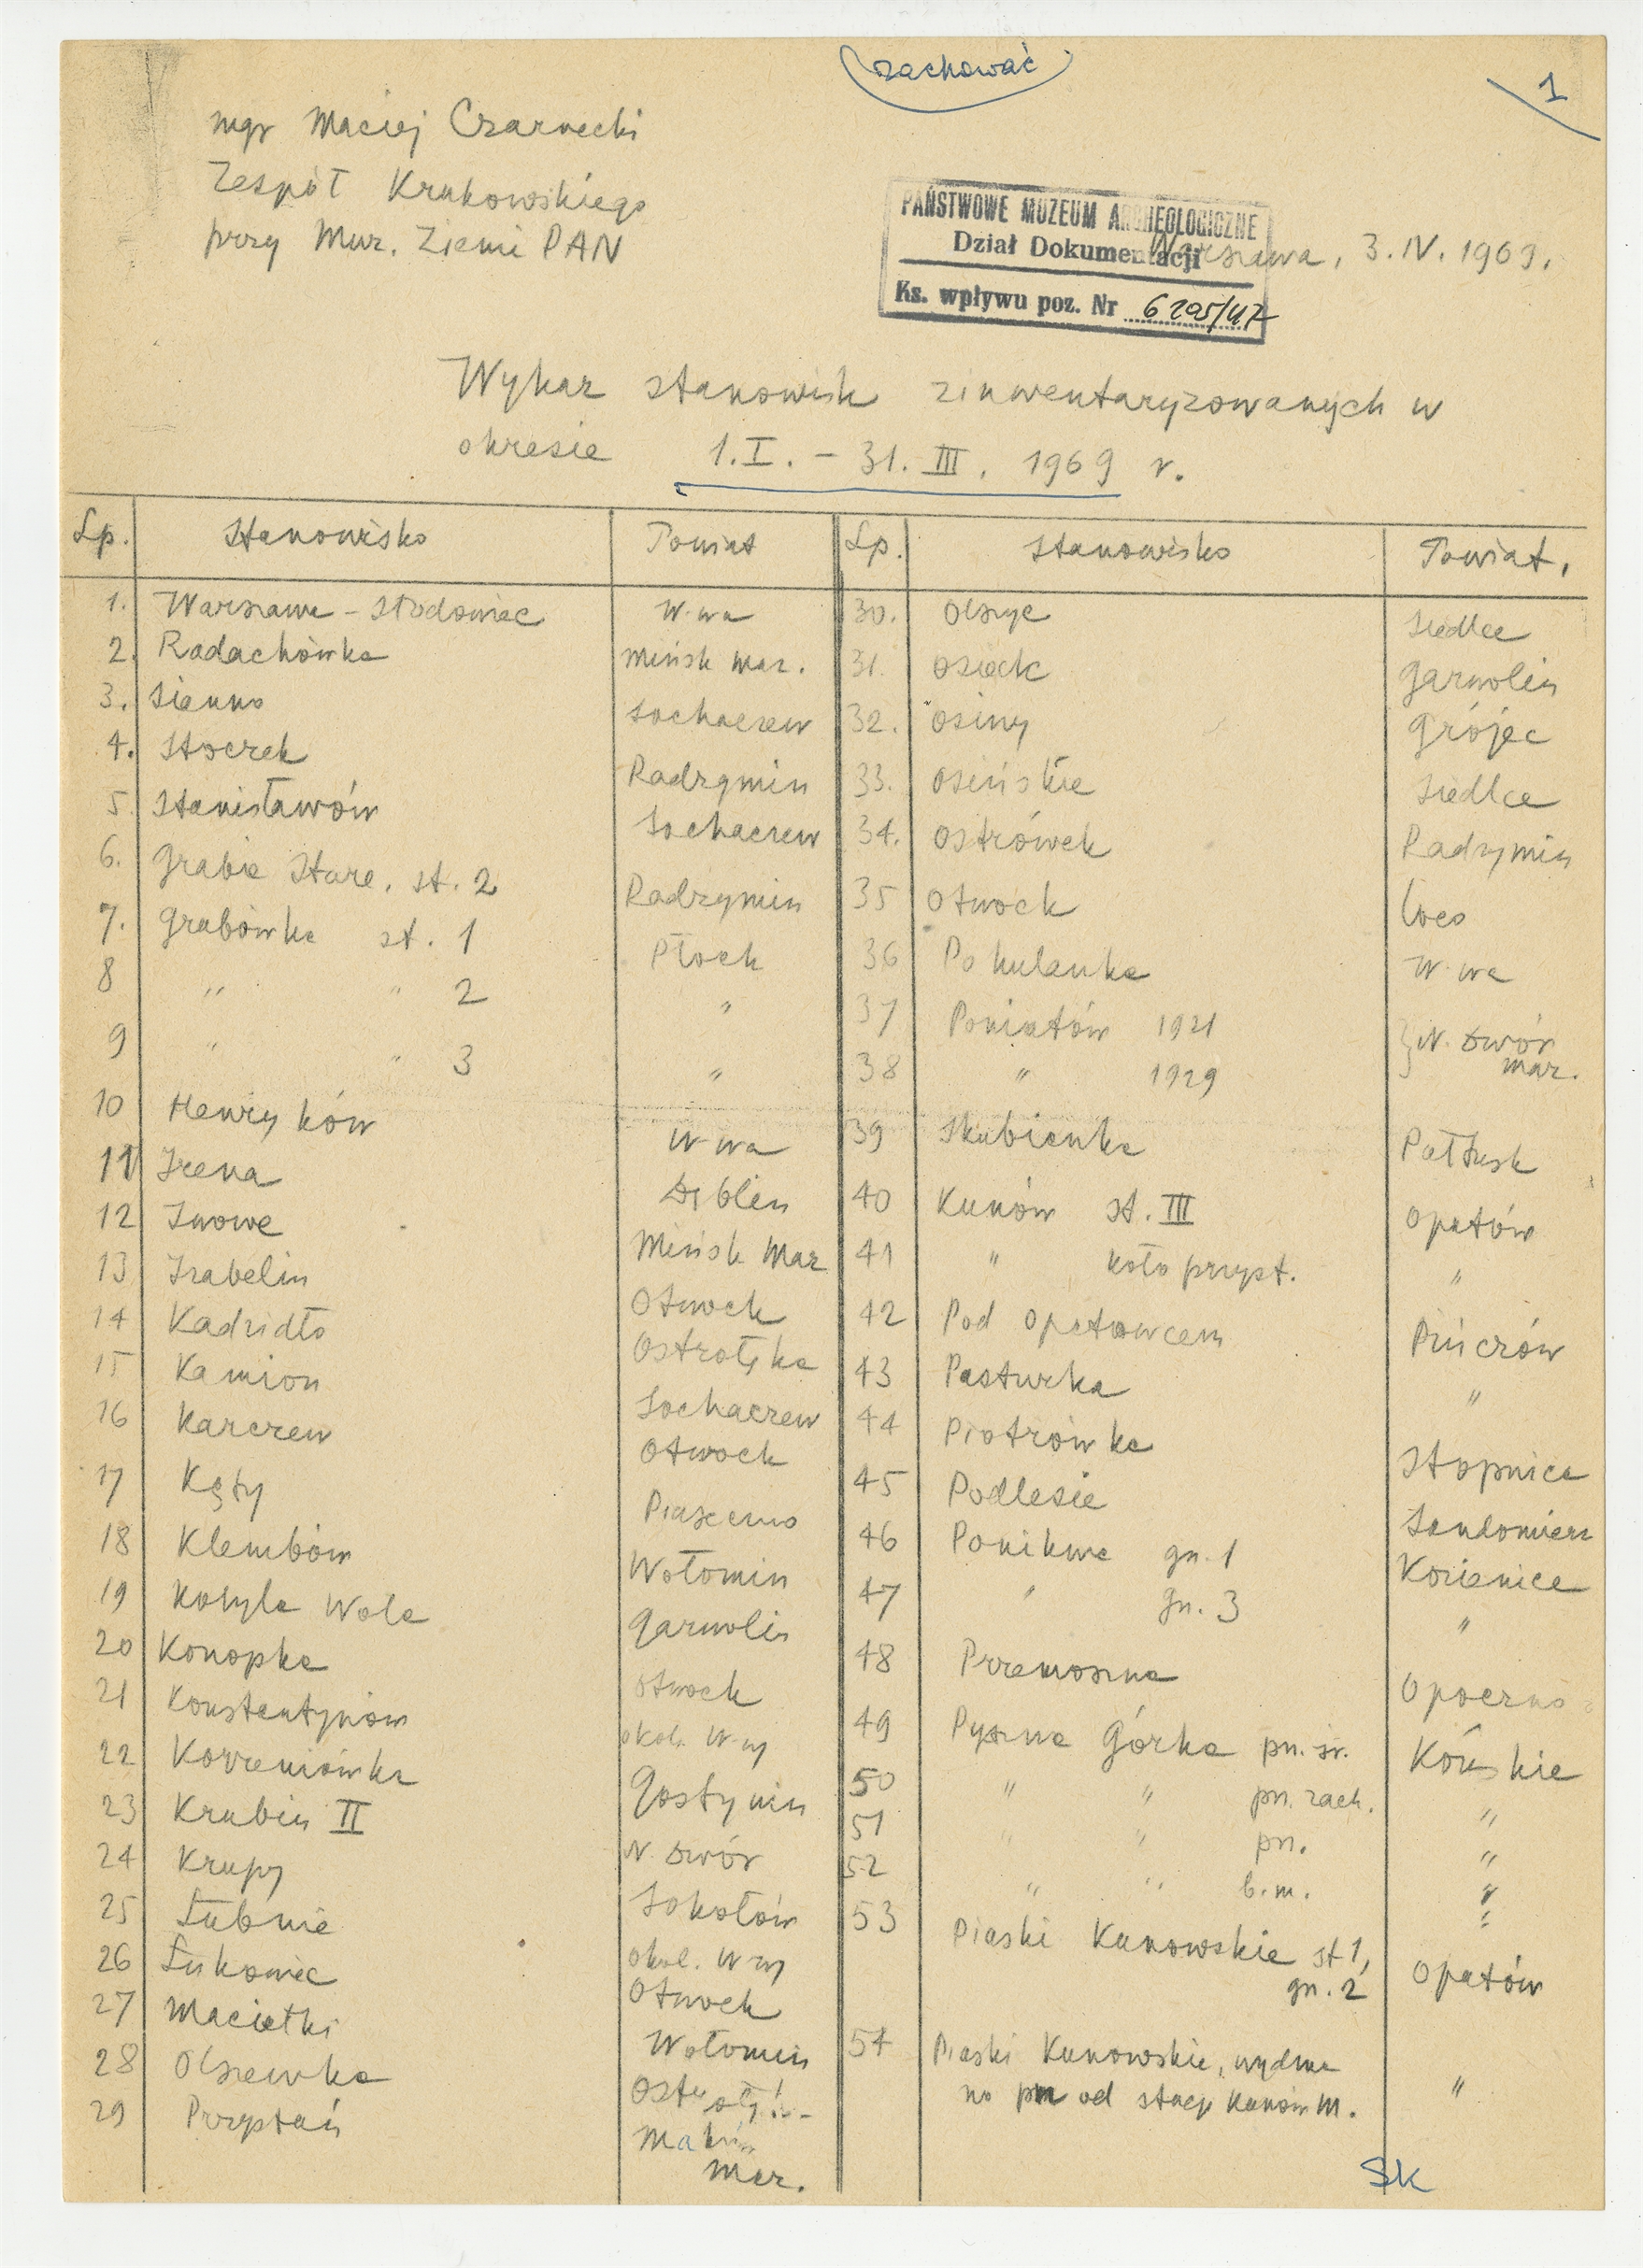 zachować
1
mgr Maciej Czarnecki
Zespół Krukowskiego
przy Muz. Ziemi PAN
PAŃSTWOWE MUZEUM ARCHEOLOGICZNE
Dział Dokumentacji
Ks. wpływu poz. Nr 6205/47
Warszawa, 3.IV.1969.
Wykaz stanowisk zinwentaryzowanych w
okresie 1.I. – 31.III. 1969 r.
Lp. Stanowisko Powiat Lp. Stanowisko Powiat.
1. Warszawa – Słodowiec W-wa
2. Radachówka Mińsk Maz.
3. Sienno Sochaczew
4. Stoczek Radzymin
5 Stanisławów Sochaczew
6. Grabie Stare, st. 2 Radzymin
7. Grabówka st. 1 Płock
8 " " 2 "
9 " " 3 "
10 Henryków W-wa
11 Irena Dęblin
12 Iwowe Mińsk Maz
13 Izabelin Otwock
14 Kadzidło Ostrołęka
15 Kamion Sochaczew
16 Karczew Otwock
17 Kąty Piaseczno
18 Klembów Wołomin
19 Kobyla Wola Garwolin
20 Konopka Otwock
21 Konstantynów okol. W-wy
22 Korzeniówka Gostynin
23 Krubin II N. Dwór
24 Krupy Sokołów
25 Łubnie okol. W-wy
26 Łukowiec Otwock
27 Maciołki Wołomin
28 Olszewka
29 Przystań Maków
Maz.
30. Olszyc Siedlce
31. Osieck Garwolin
32. Osiny Grójec
33. Osińskie Siedlce
34. Ostrówek Radzymin
35 Otwock loco
36 Pohulanka W-wa
37 Poniatów 1921 } N. Dwór
38 " 1929 Maz.
39 Skubianka Pułtusk
40 Kunów st. III Opatów
41 " koło przyst. "
42 Pod Opatowcem Pińczów
43 Pasturka "
44 Piotrówka Stopnica
45 Podlesie Sandomierz
46 Ponikwa gn. 1 Kozienice
47 " gn. 3 "
48 Przemoszna Opoczno
49 Pyszna Górka pn. św. Końskie
50 " " pn. zach. "
51 " " pn. "
52 " " b.m. "
53 Piaski Kunowskie st 1,
gn. 2 Opatów
54 Piaski Kunowskie, wydma
na pn od stacji Kunów M. "
SK